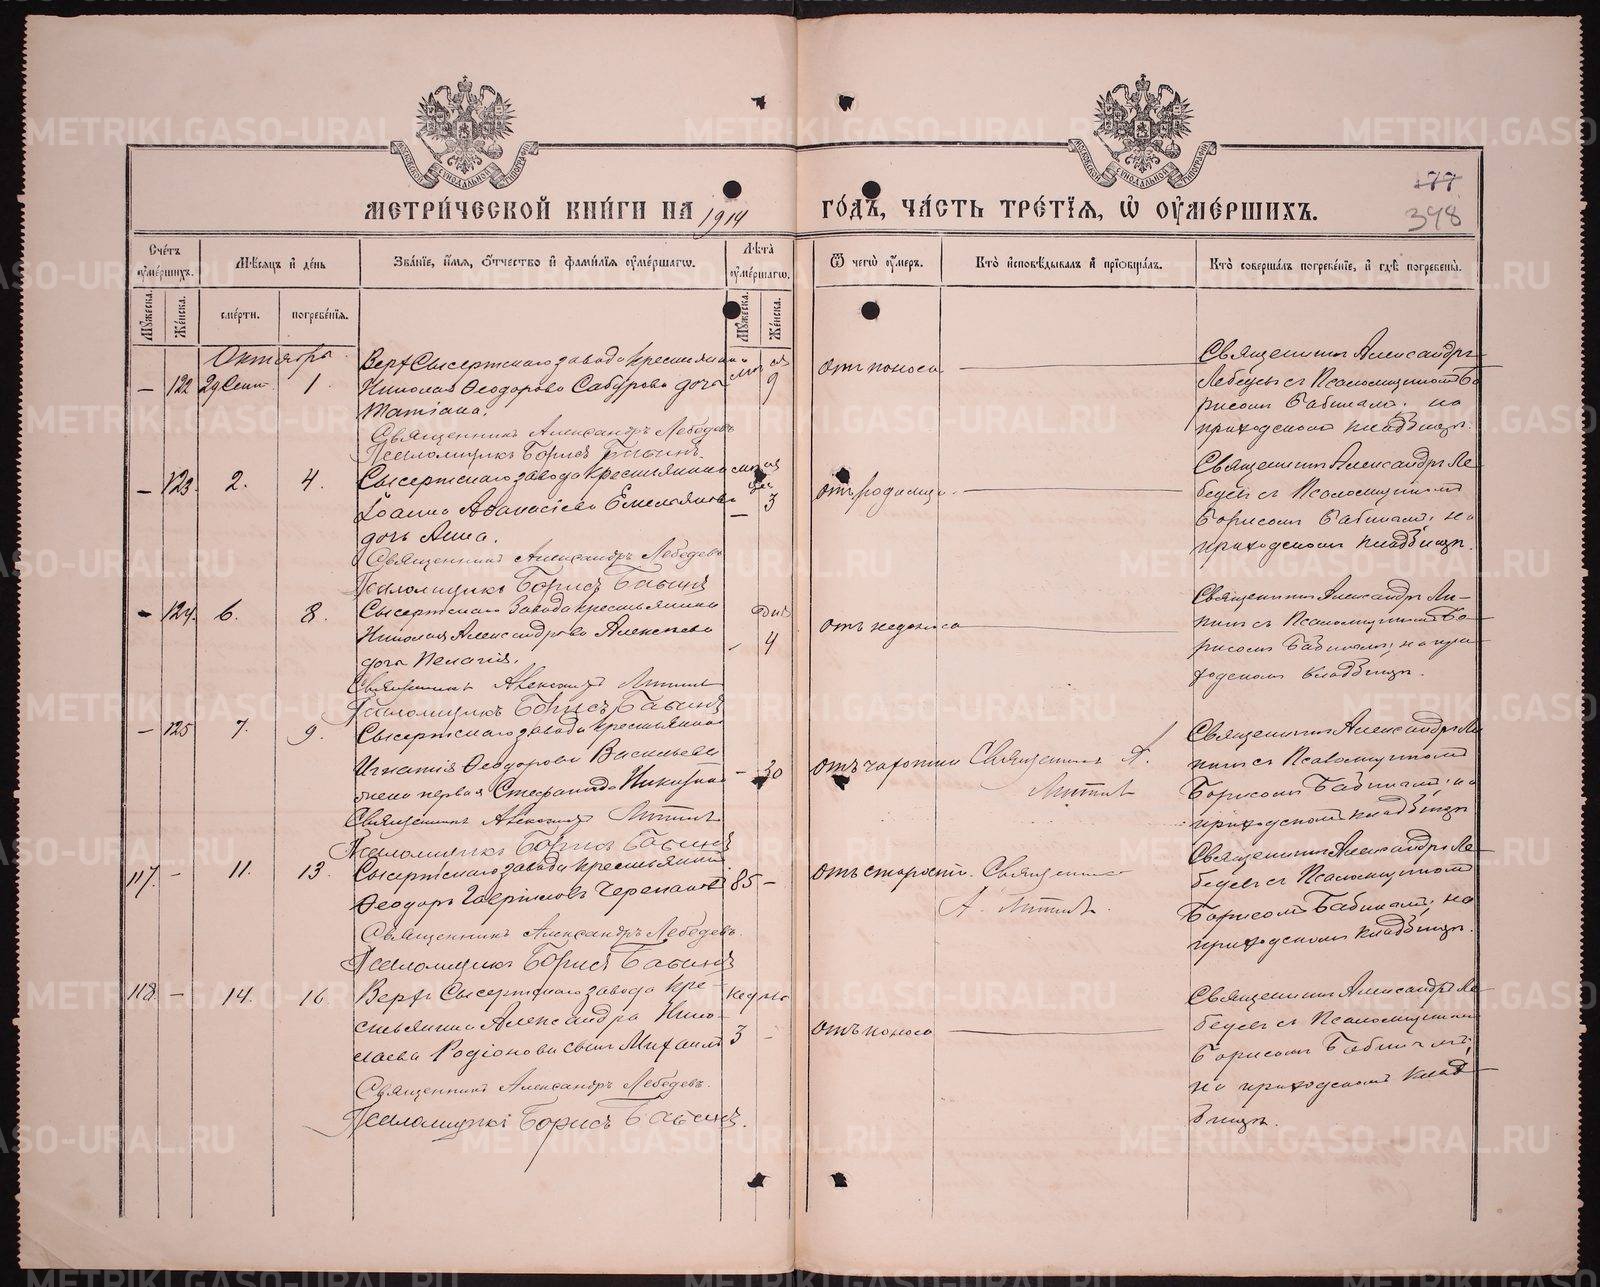 МЕТРИ́ЧЕСКОЙ КНИ́ГИ НА 1914 ГО́ДЪ, ЧА́СТЬ ТРЕ́ТІѦ, Ѡ҆ ОУ҆МЕ́РШИХЪ.
177
398
Сче́тъ оу҆ме́ршихъ.
Мꙋ́жеска.
Же́нска.
Мѣ́сѧцъ и҆ де́нь
сме́рти.
погребе́нїѧ.
Зва́нїе, и҆́мѧ, ѻ҆́тчество и҆ фами́лїѧ оу҆ме́ршагѡ.
Лѣ́та оу҆ме́ршагѡ.
Мꙋ́жеска.
Же́нска.
Ѿ чегѡ̀ оу҆́меръ.
Кто̀ и҆сповѣ́дывалъ и҆ прїѡбща́лъ.
Кто̀ соверша́лъ погребе́нїе, и҆ гдѣ̀ погребены̀.
Октября
Верх Сысертскаго завода крестьянина
— 122 29 Сент 1. Николая Ѳеодорова Сабурова дочь 9 отъ поноса
Татіана.
Священникъ Александръ Лебедевъ
Псаломщикъ Борисъ Бабинъ.
Священникъ Александръ
Лебедевъ съ Псаломщикомъ Бо
рисомъ Бабинымъ, на
приходскомъ кладбищѣ.
— 123. 2. 4. Сысертскаго завода крестьянина
Іоанна Аѳанасіева Емельянова — 3
дочь Анна.
Священникъ Александръ Лебедевъ
Псаломщикъ Борисъ Бабинъ
отъ родимца.
Священникъ Александръ Ле
бедевъ съ Псаломщикомъ
Борисомъ Бабинымъ, на
приходскомъ кладбищѣ.
— 124. 6. 8. Сысертскаго завода крестьянина дня
Николая Александрова Алексѣева - 4
дочь Пелагія.
Священникъ
Псаломщикъ Борисъ Бабинъ
отъ недоноса
Священникъ Александръ
съ Псаломщикомъ Бо
рисомъ Бабинымъ, на при
ходскомъ кладбищѣ.
— 125 7. 9. Сысертскаго завода крестьянина
Игнатія Ѳеодорова Васильева
жена первая Стефанида - 30
Священникъ
Псаломщикъ Борисъ Бабинъ
отъ чахотки Священникъ А.
Священникъ Александръ
съ Псаломщикомъ
Борисомъ Бабинымъ, на
приходскомъ кладбищѣ
117. — 11. 13. Сысертскаго завода крестьянинъ
Ѳеодоръ Гавриловъ Черепановъ 85 -
Священникъ Александръ Лебедевъ.
Псаломщикъ Борисъ Бабинъ
отъ старости. Священникъ
А.
Священникъ Александръ Ле
бедевъ съ Псаломщикомъ
Борисомъ Бабинымъ, на
приходскомъ кладбищѣ.
118. — 14. 16. Верхъ Сысертскаго завода кре-
стьянина Александра Нико-
лаева Родіонова сынъ Михаилъ 3 -
Священникъ Александръ Лебедевъ.
Псаломщикъ Борисъ Бабинъ.
отъ поноса
Священникъ Александръ Ле
бедевъ съ Псаломщикомъ
Борисомъ Бабинымъ,
на приходскомъ клад
бищѣ.
METRIKI.GASO-URAL.RU